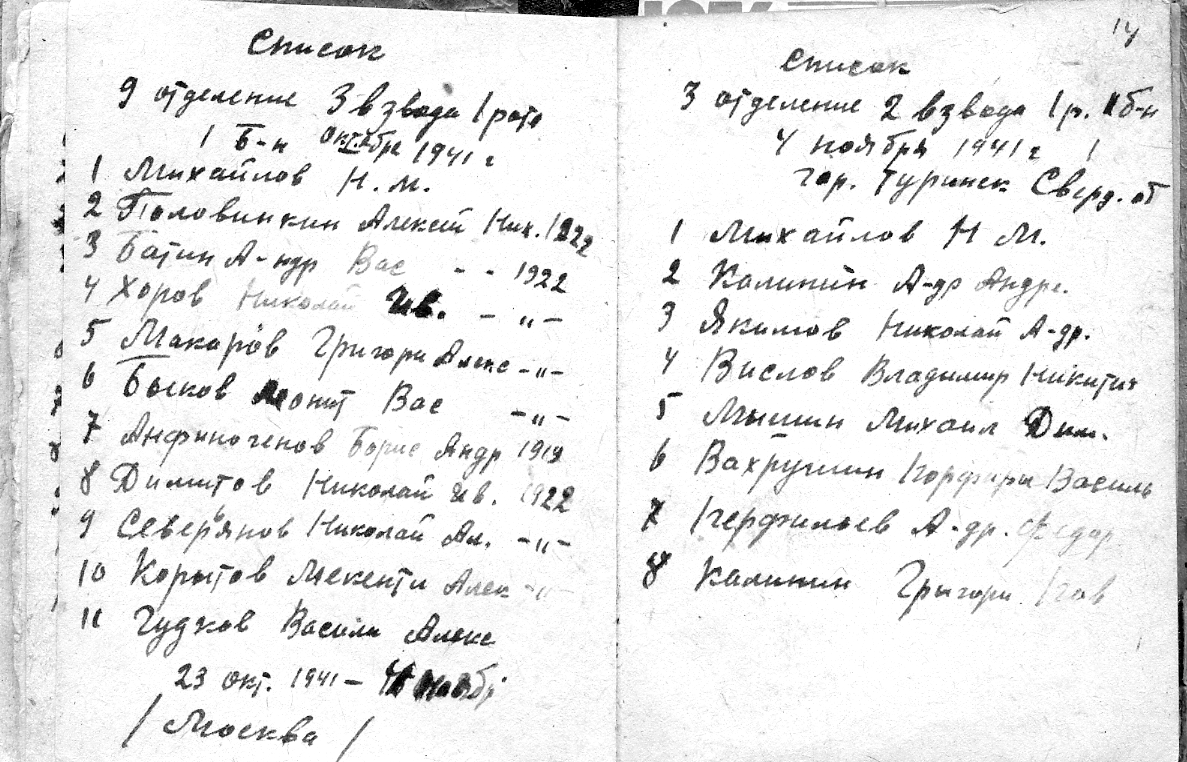 Список
9 отделение 3 взвода 1 рота
1 Б-н октябре 1941 г
1 Михайлов Н. М.
2 Половинкин Алексей Ник. 1922
3 Батин А-ндр Вас - - 1922
4 Хоров Николай Ив. - „ -
5 Макаров Григори Алекс - „ -
6 Быков Леонит Вас - „ -
7 Анфиногенов Борис Андр 1919
8 Димитов Николай Ив. 1922
9 Северьянов Николай Ал. - „ -
10 Корытов Мекенти Алек - „ -
11 Гудков Васили Алекс
23 окт. 1941 - 4 ноябр
/ Москва /
14
Список
3 отделение 2 взвода 1 р. 1 б-н
4 ноября 1941 г
гор. Туринск Сверд. об
1 Михайлов Н М.
2 Калинин А-др Андре.
3 Якимов Николай А-др.
4 Вислов Владимир Никитич
5 Мышин Михаил Дим.
6 Вахрушин Порфири Василь
7 Перфильев А-др. Федор
8 Калинин Григори